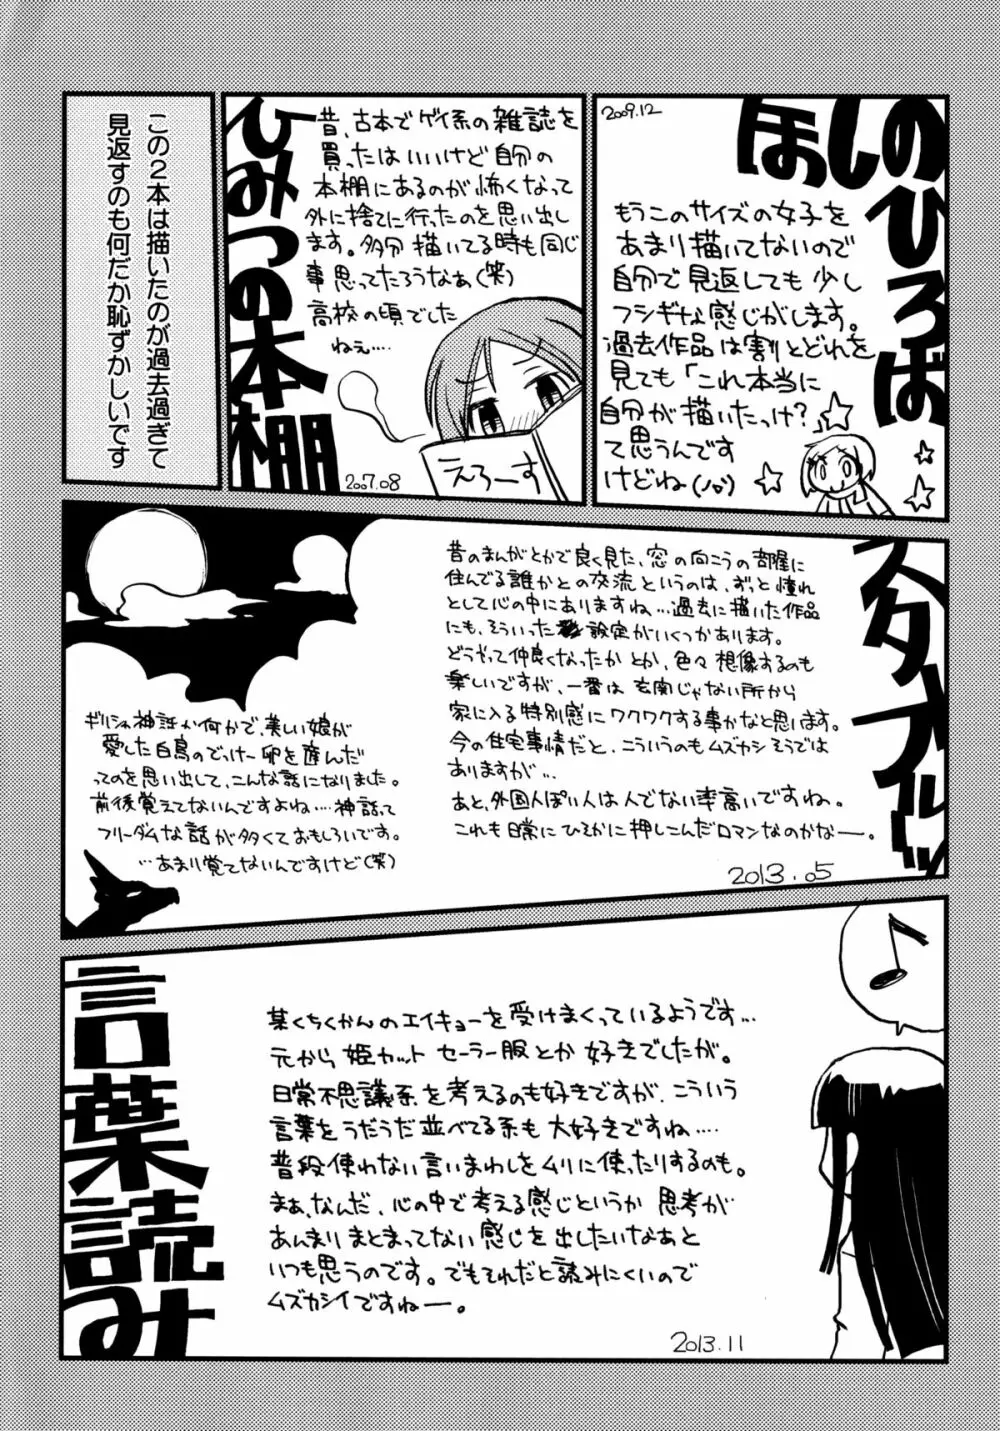 ほしのひろば
2009.12
もうこのサイズの女子を
あまり描いてないので
自分で見返しても少し
フシギな感じがします。
過去作品は割とどれを
見ても「これ本当に
自分が描いたっけ?
て思うんです
けどね(ノω`)
ひみつの本棚
昔、古本でゲイ系の雑誌を
買ったはいいけど自分の
本棚にあるのが怖くなって
外に捨てに行ったのを思い出し
ます。多分描いてる時も同じ
事思ってたろうなぁ(笑)
高校の頃でした
ねぇ....
えろーす
2007.08
この2本は描いたのが過去過ぎて
見返すのも何だか恥ずかしいです
昔のまんがとかで良く見た、窓の向こうの部屋に
住んでる誰かとの交流というのは、ずっと憧れ
として心の中にありますね...過去に描いた作品
にも、そういった設定がいくつかあります。
どうやって仲良くなったかとか、色々想像するのも
楽しいですが、一番は玄関じゃない所から
家に入る特別感にワクワクする事かなと思います。
今の住宅事情だと、こういうのもムズカシそうでは
ありますが...
あと、外国人ぽい人は人でない率高いですね。
これも日常にひそかに押しこんだロマンなのかなー。
2013.05
ギリシャ神話か何かで、美しい娘が
愛した白鳥のでっけー卵を産んだ
ってのを思い出して、こんな話になりました。
前後覚えてないんですよね....神話って
フリーダムな話が多くておもしろいです。
...あまり覚てないんですけど(笑)
言葉読み
某くちくかんのエイキョーを受けまくっているようです...
元から姫カット セーラー服とか好きでしたが。
日常不思議系を考えるのも好きですが、こういう
言葉をうだうだ並べてる系も大好きですね....
普段使わない言いまわしをムリに使ったりするのも。
まぁ、なんだ、心の中で考える感じというか 思考が
あんまりまとまってない感じを出したいなあと
いつも思うのです。でもそれだと読みにくいので
ムズカシイですねー。
2013.11